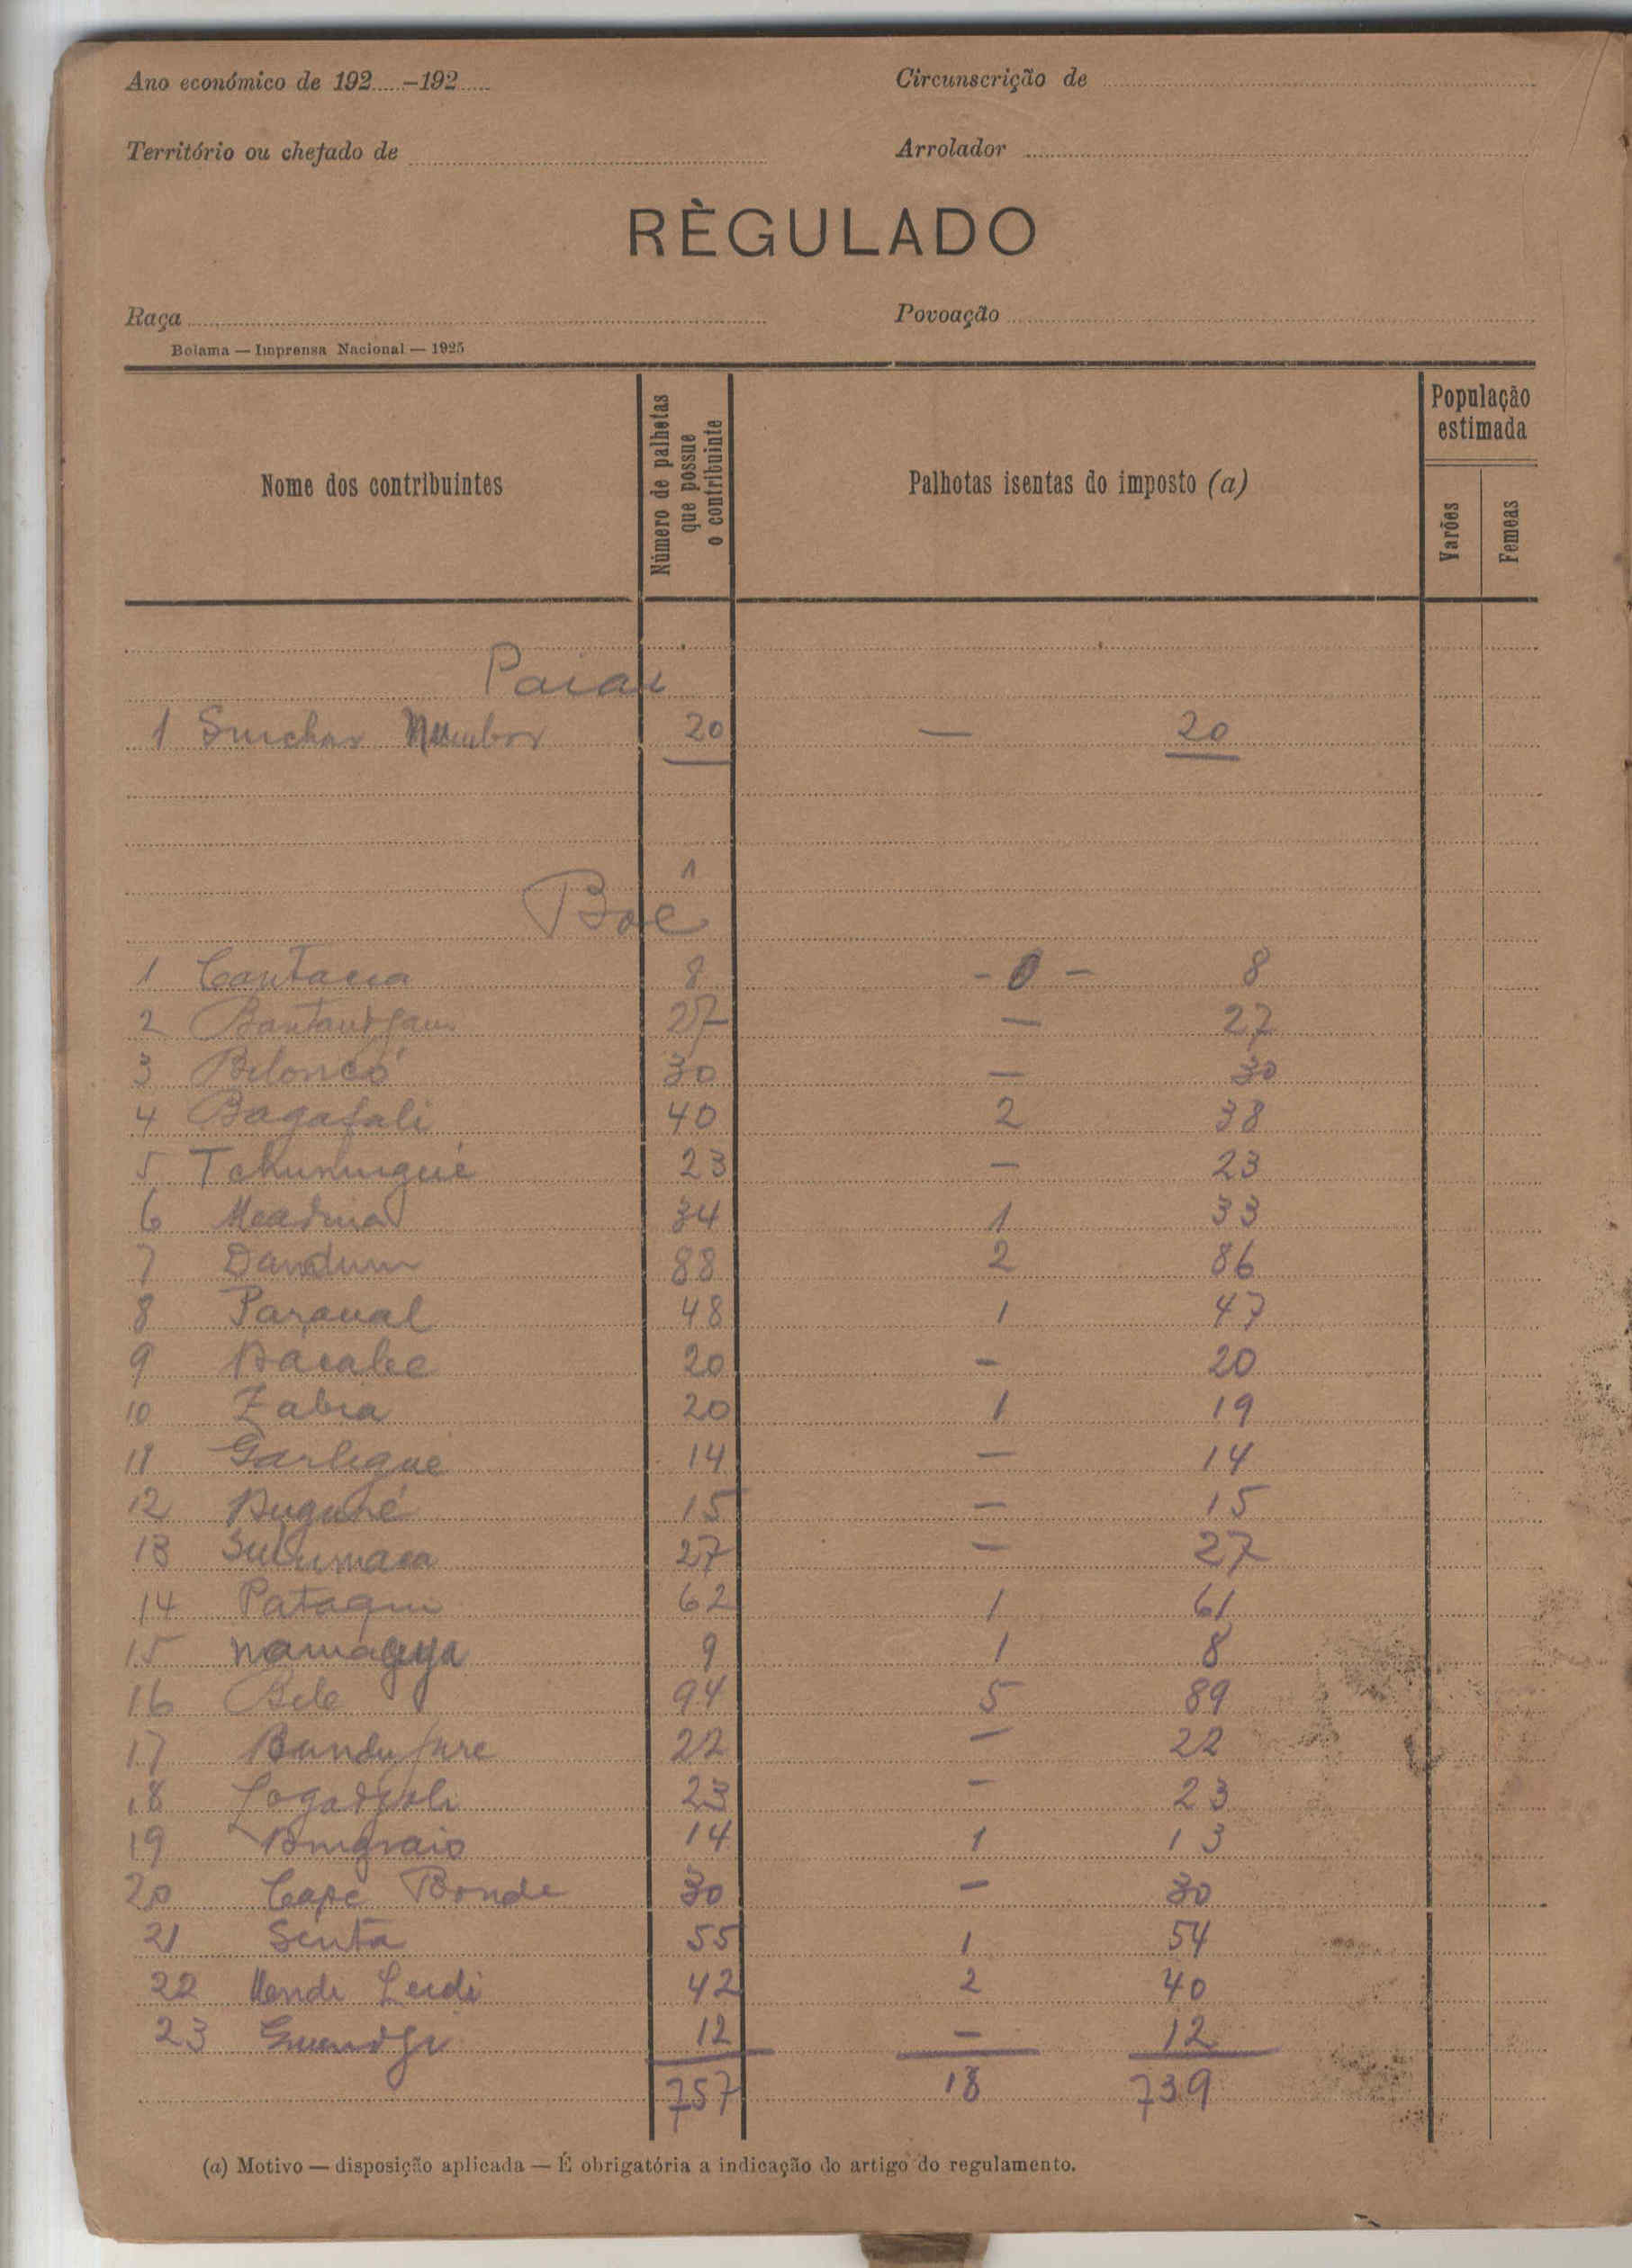 Ano económico de 192.....–192.....
Circunscrição de
Território ou chefado de
Arrolador
RÈGULADO
Raça
Povoação
Bolama — Imprensa Nacional — 1925
Nome dos contribuintes
Número de palhetas que possue o contribuinte
Palhotas isentas do imposto (a)
População estimada
Varões
Femeas
Paiai
1 20 — 20
1
Boe
1 8 - 0 - 8
2 27 — 27
3 Beloncó 30 — 30
4 Bagafali 40 2 38
5 23 — 23
6 Meadina 34 1 33
7 Dandum 88 2 86
8 Paraual 48 1 47
9 20 — 20
10 Zabia 20 1 19
11 Garlegué 14 — 14
12 15 — 15
13 27 — 27
14 Pataqui 62 1 61
15 9 1 8
16 Bele 94 5 89
17 Bundufure 22 — 22
18 23 — 23
19 14 1 13
20 Cape Bonde 30 — 30
21 Senta 55 1 54
22 42 2 40
23 12 — 12
757 18 739
(a) Motivo — disposição aplicada — É obrigatória a indicação do artigo do regulamento.